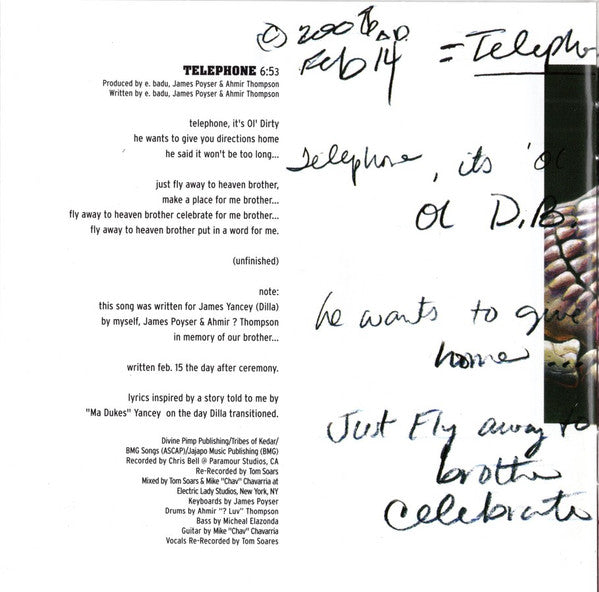 TELEPHONE 6:53
Produced by e. badu, James Poyser & Ahmir Thompson
Written by e. badu, James Poyser & Ahmir Thompson
telephone, it's Ol' Dirty
he wants to give you directions home
he said it won't be too long...
just fly away to heaven brother,
make a place for me brother...
fly away to heaven brother celebrate for me brother...
fly away to heaven brother put in a word for me.
(unfinished)
note:
this song was written for James Yancey (Dilla)
by myself, James Poyser & Ahmir ? Thompson
in memory of our brother...
written feb. 15 the day after ceremony.
lyrics inspired by a story told to me by
"Ma Dukes" Yancey on the day Dilla transitioned.
Divine Pimp Publishing/Tribes of Kedar/
BMG Songs (ASCAP)/Jajapo Music Publishing (BMG)
Recorded by Chris Bell @ Paramour Studios, CA
Re-Recorded by Tom Soars
Mixed by Tom Soars & Mike "Chav" Chavarria at
Electric Lady Studios, New York, NY
Keyboards by James Poyser
Drums by Ahmir "? Luv" Thompson
Bass by Micheal Elazonda
Guitar by Mike "Chav" Chavarria
Vocals Re-Recorded by Tom Soares
© 2006 A.D.
Feb 14 = Telepho
Telephone, its 'ol
Ol D.B.
he wants to give
home...
Just Fly away to
brother
celebrate